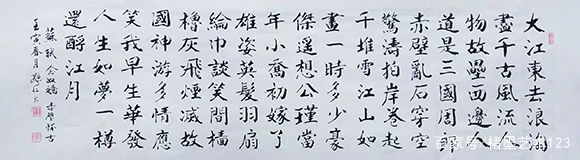 大江東去浪淘
盡千古風流人
物故壘西邊人
道是三國周郎
赤壁亂石穿空
驚濤拍岸卷起
千堆雪江山如
畫一時多少豪
傑遙想公瑾當
年小喬初嫁了
雄姿英發羽扇
綸巾談笑間檣
櫓灰飛煙滅故
國神游多情應
笑我早生華發
人生如夢一樽
還酹江月
蘇軾念奴嬌赤壁懷古
壬寅春月